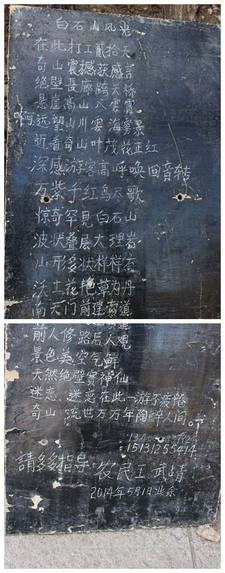 白石山风光
在此打工贰拾天
奇山震撼获感言
绝壁長廊跨天标
悬崖高山入雲霄
啊远望山川雲海雾景
近看奇山叶茂花正红
深感游客高呼唤回音转
万紫千红鸟尽歌
惊奇罕见白石山
波状叠层大理岩
山形多状样样态
沃土花艳草为丹
南天门前建索道
前人修路后人观
景色美空气鲜
天然绝壁赛神仙
迷恋 迷恋在此一游不后悔
奇山 流世万万年陶醉人间。
15131255414
請多多指导 农民工武靖
2014年5月1日业余